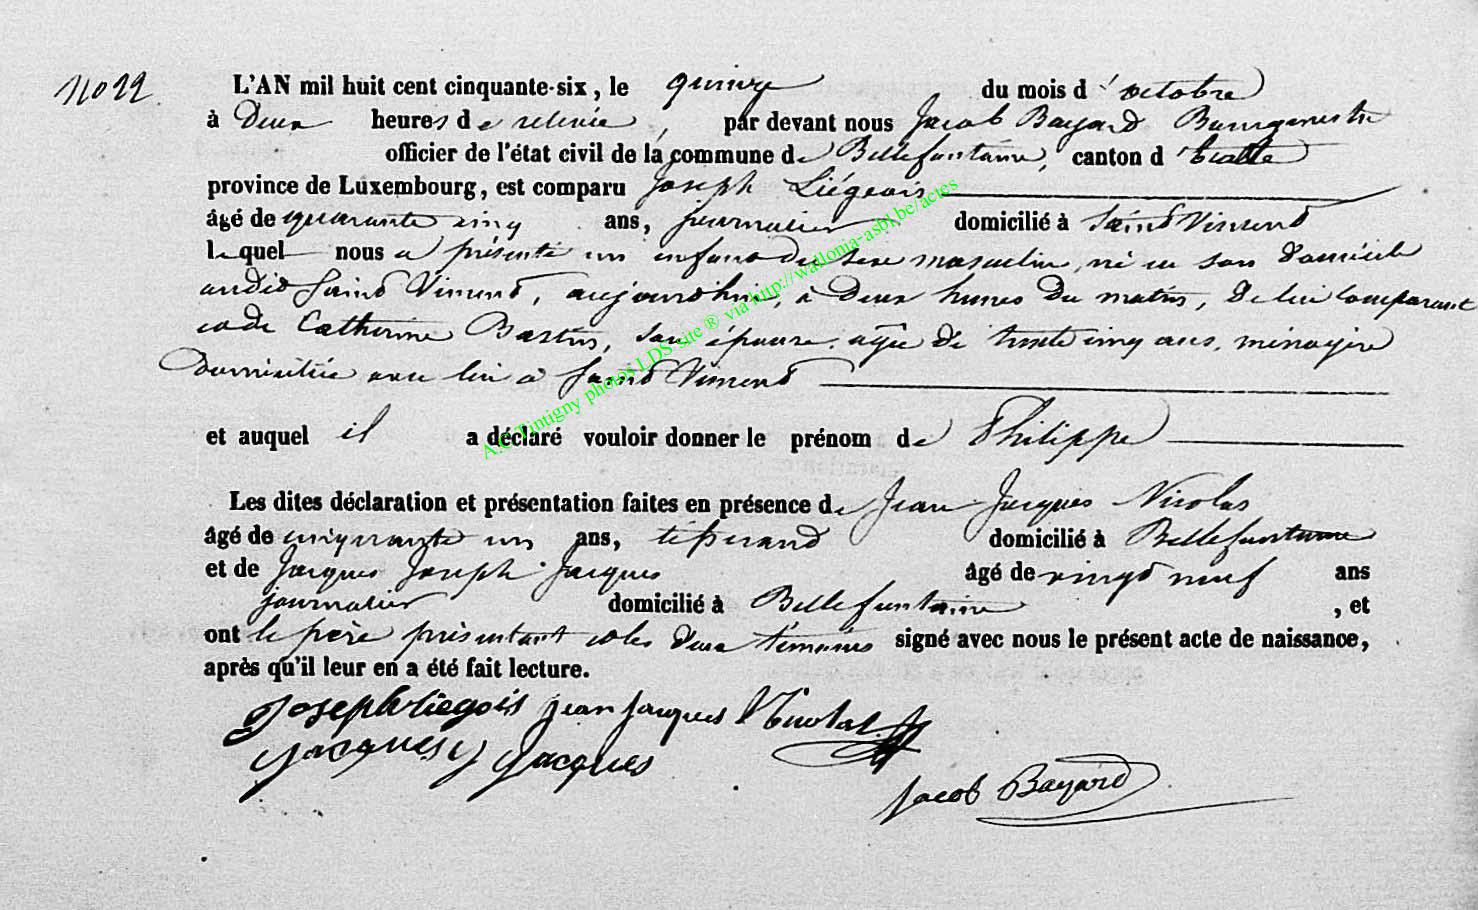 No 22
L'AN mil huit cent cinquante-six, le quinze du mois d'octobre
à Deux heures de relevée, par devant nous Jacob Bayard Bourgmestre
officier de l'état civil de la commune de Bellefontaine, canton d'Etalle
province de Luxembourg, est comparu Joseph Liégeois
âgé de quarante cinq ans, journalier domicilié à Saint Vincent
lequel nous a présenté un enfant du sexe masculin, né en son domicile
audit Saint Vincent, aujourdhui, à Deux heures du matin, de lui comparant
et de Catherine Bastin, son épouse, agée de trente cinq ans, ménagère
domiciliée avec lui à Saint Vincent
et auquel il a déclaré vouloir donner le prénom de Philippe
Les dites déclaration et présentation faites en présence de Jean Jacques Nicolas
âgé de cinquante un ans, tisserand domicilié à Bellefontaine
et de Jacques Joseph Jacques âgé de vingt neuf ans
journalier domicilié à Bellefontaine, et
ont le père présentant et les deux témoins signé avec nous le présent acte de naissance,
après qu'il leur en a été fait lecture.
Joseph liegois jean jacques Nicolas
jacques j jacques
Jacob Bayard
A.C Tintigny photos LDS site ® via http://wallonia-asbl.be/actes